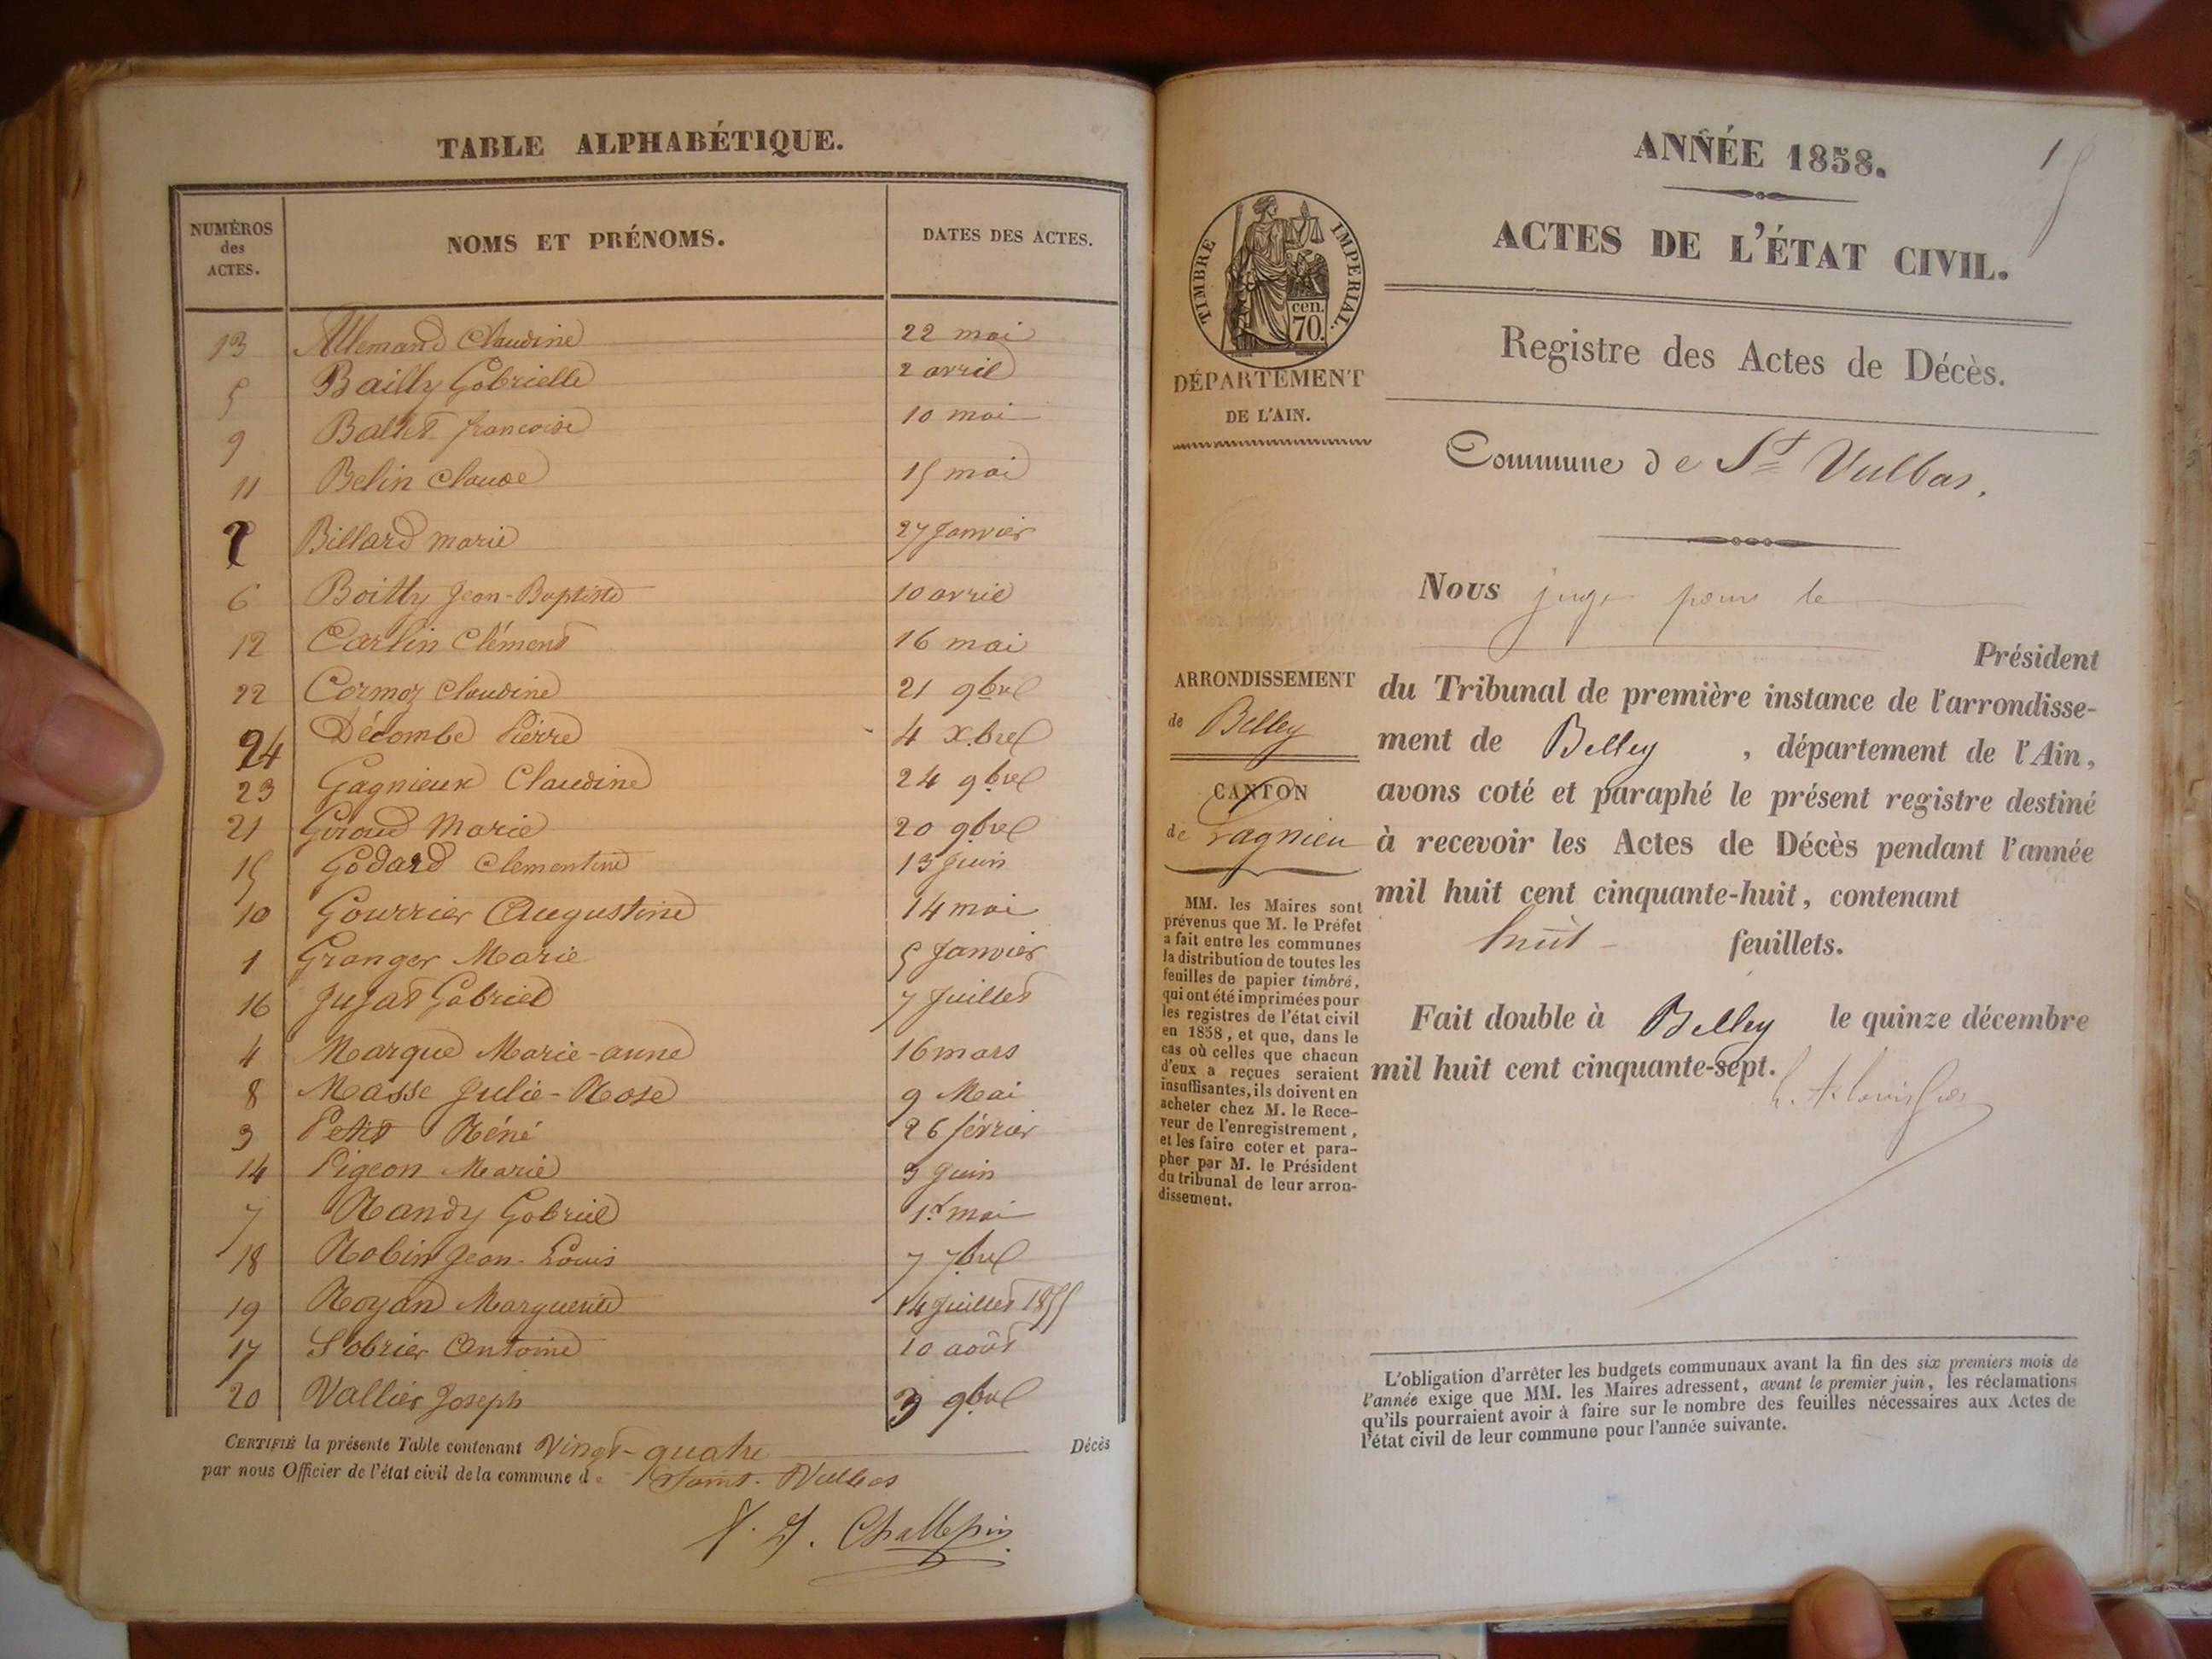 TABLE ALPHABÉTIQUE.
NUMÉROS des ACTES. NOMS ET PRÉNOMS. DATES DES ACTES.
13 Allemand Claudine 22 mai
5 Bailly Gabrielle 2 avril
9 Ballet francoise 10 mai
11 Belin Claude 15 mai
2 Billard marie 27 Janvier
6 Boilly Jean-Baptiste 10 avril
12 Carlin Clément 16 mai
22 Cormoz Claudine 21 9bre
24 Décombe Pierre 4 X.bre
23 Gagnieux Claudine 24 9bre
21 Giroud Marie 20 9bre
15 Godard Clementine 13 Juin
10 Gourrier Augustine 14 mai
1 Granger Marie 5 Janvier
16 Jujat Gabriel 7 Juillet
4 Marque Marie-anne 16 mars
8 Masse Julie-Rose 9 Mai
3 Petit Réné 26 février
14 Pigeon Marie 3 Juin
7 Randy Gabriel 1.r mai
18 Robin Jean-Louis 7 7bre
19 Royan Marguerite 14 Juillet 1855
17 Sobrier Antoine 10 août
20 Vallier Joseph 3 9bre
CERTIFIÉ la présente Table contenant Vingt-quatre Décès
par nous Officier de l'état civil de la commune de Saint-Vulbas
Challepin
ANNÉE 1858.
1
ACTES DE L'ÉTAT CIVIL.
TIMBRE IMPERIAL.
cen.
70.
DÉPARTEMENT
DE L'AIN.
Registre des Actes de Décès.
Commune de St Vulbas.
Nous juge pour le
Président
du Tribunal de première instance de l'arrondisse-
ment de Belley, département de l'Ain,
avons coté et paraphé le présent registre destiné
à recevoir les Actes de Décès pendant l'année
mil huit cent cinquante-huit, contenant
huit feuillets.
Fait double à Belley le quinze décembre
mil huit cent cinquante-sept.
ARRONDISSEMENT
de Belley
CANTON
de Lagnieu
MM. les Maires sont
prévenus que M. le Préfet
a fait entre les communes
la distribution de toutes les
feuilles de papier timbré,
qui ont été imprimées pour
les registres de l'état civil
en 1858, et que, dans le
cas où celles que chacun
d'eux a reçues seraient
insuffisantes, ils doivent en
acheter chez M. le Rece-
veur de l'enregistrement,
et les faire coter et para-
pher par M. le Président
du tribunal de leur arron-
dissement.
L'obligation d'arrêter les budgets communaux avant la fin des six premiers mois de
l'année exige que MM. les Maires adressent, avant le premier juin, les réclamations
qu'ils pourraient avoir à faire sur le nombre des feuilles nécessaires aux Actes de
l'état civil de leur commune pour l'année suivante.